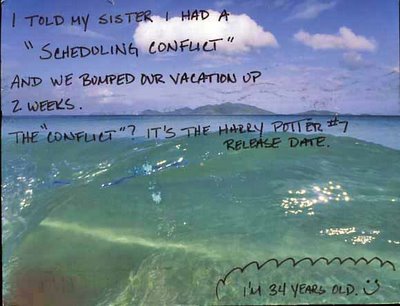 I TOLD MY SISTER I HAD A
"SCHEDULING CONFLICT"
AND WE BUMPED OUR VACATION UP
2 WEEKS.
THE "CONFLICT"? IT'S THE HARRY POTTER #7
RELEASE DATE.
I'M 34 YEARS OLD. :)